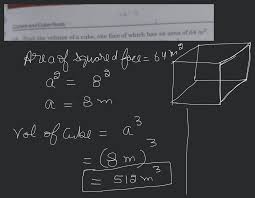 Find the volume of a cube, one face of which has an area of 64 m²
Area of squared face = 64 m²
a² = 8²
a = 8 m
Vol of Cube = a³
= (8 m)³
= 512 m³